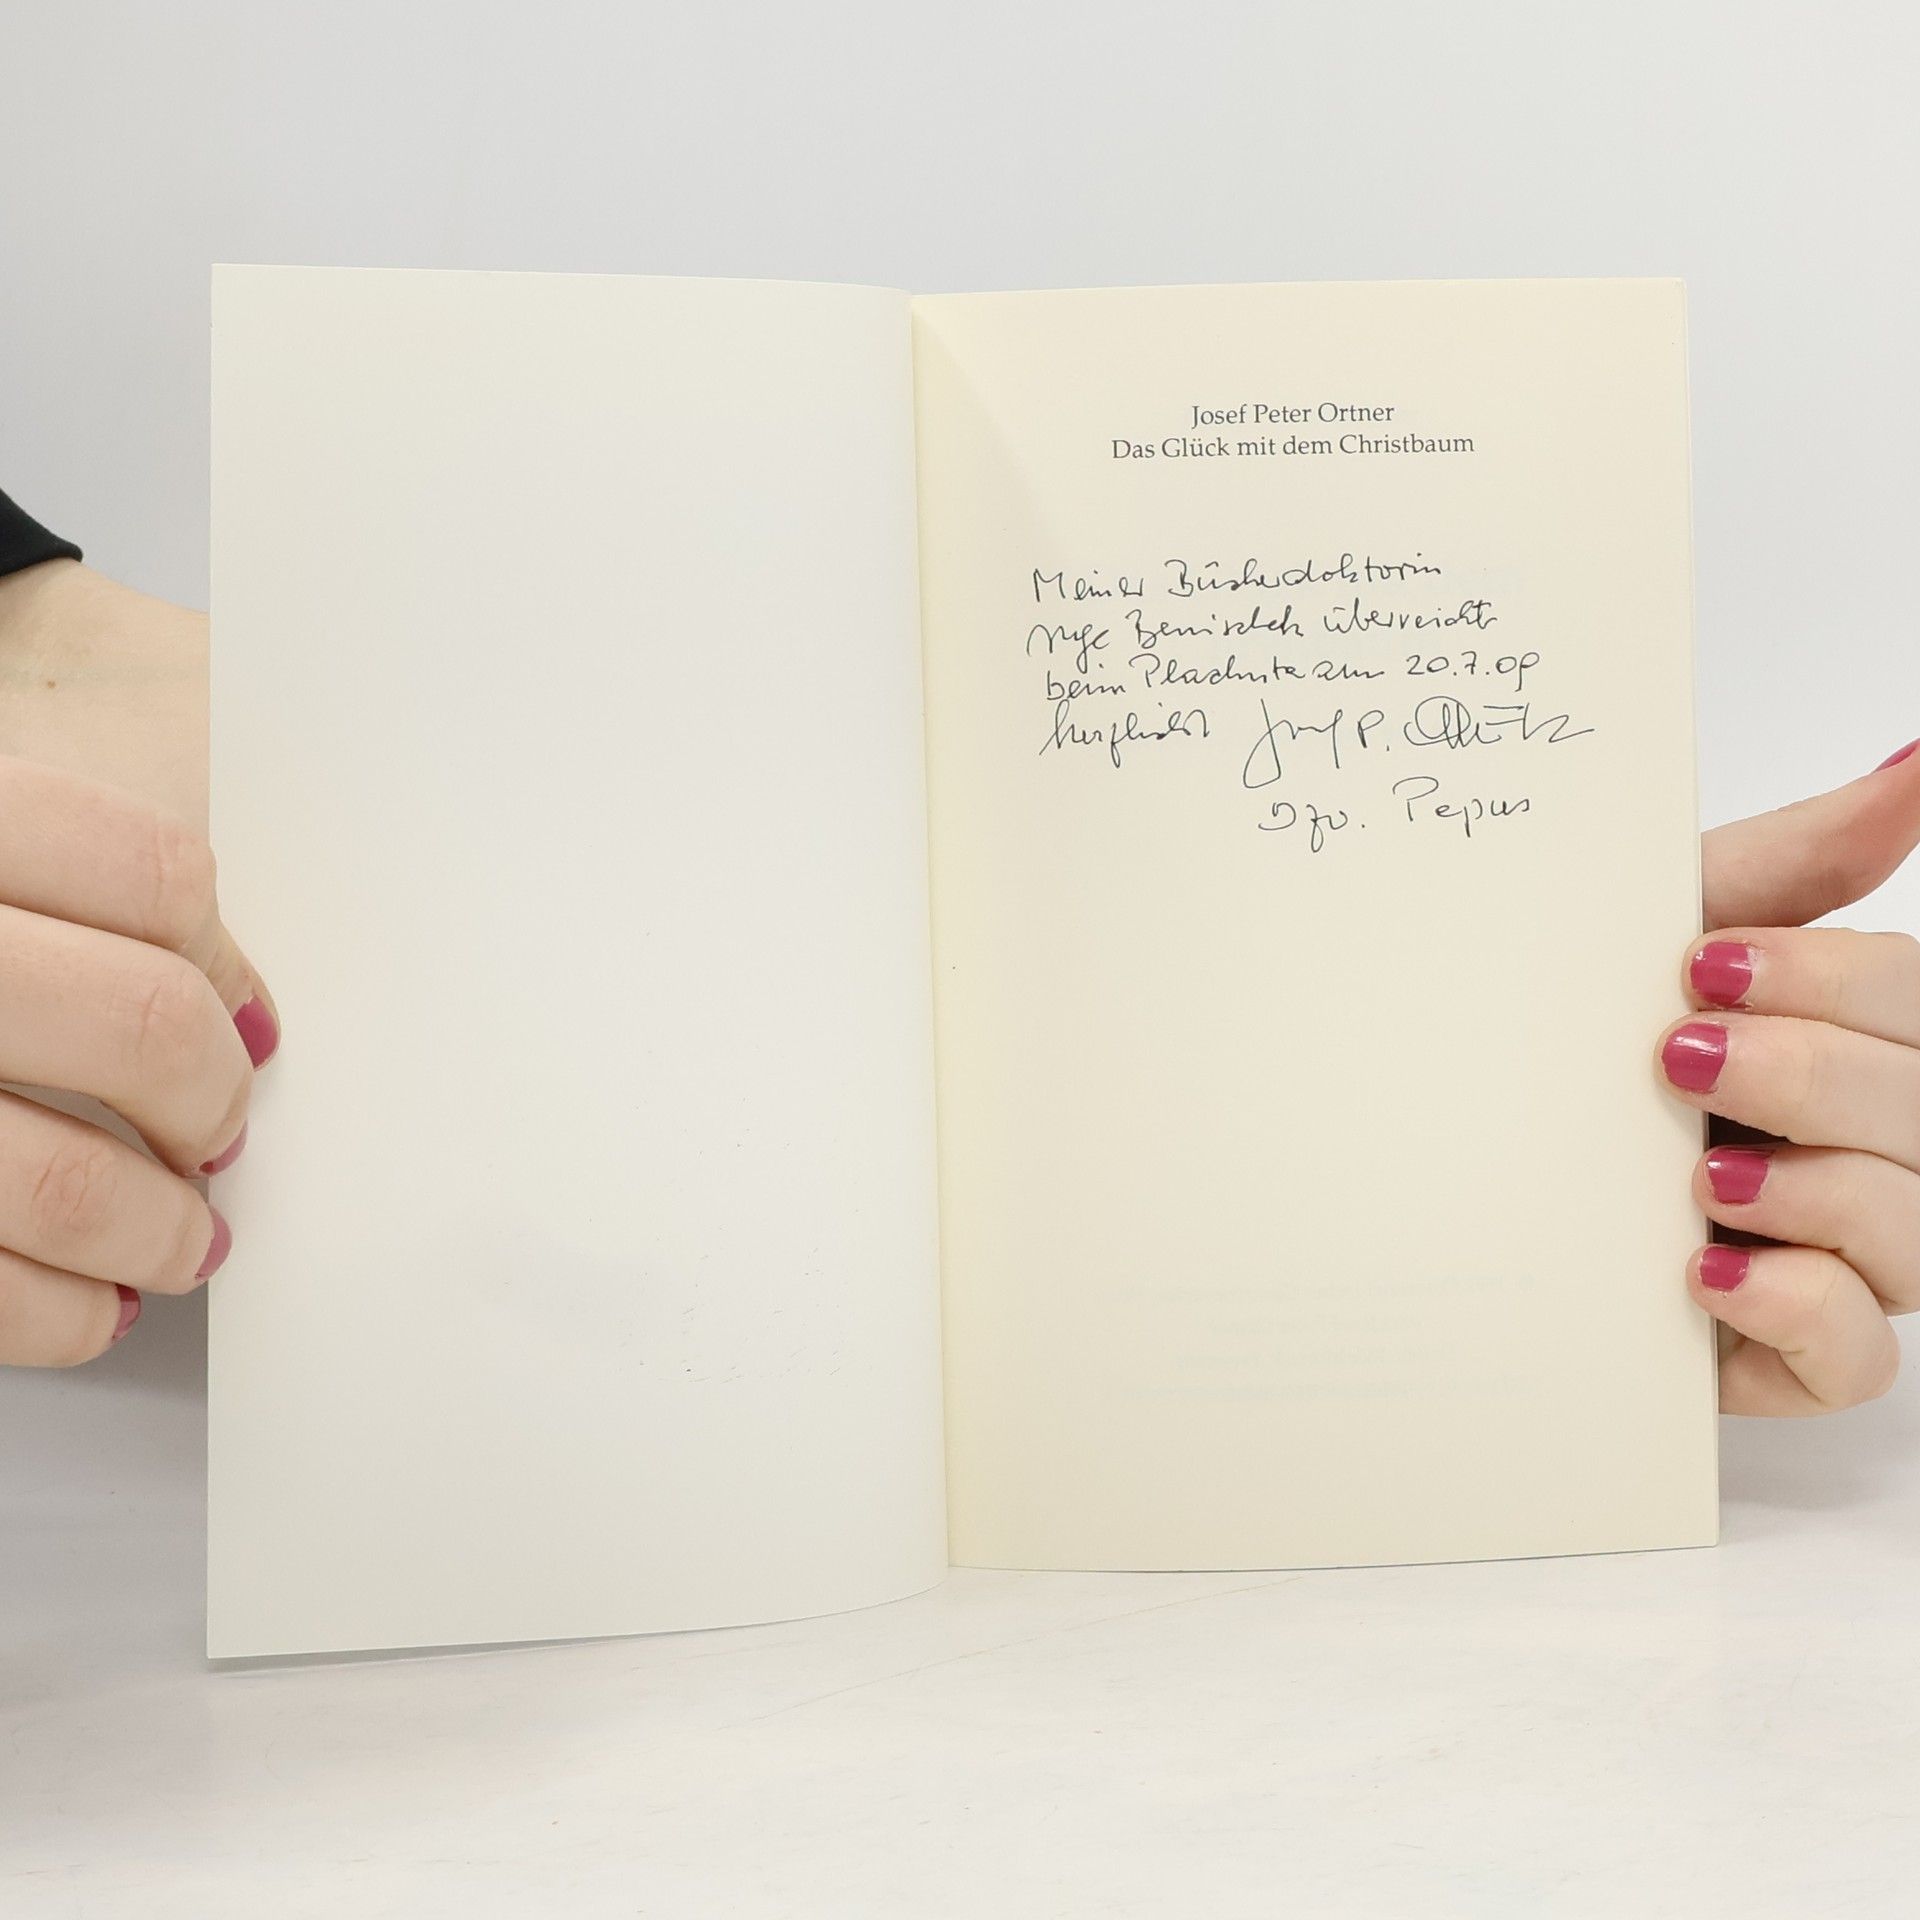 Josef Peter Ortner
Das Glück mit dem Christbaum
Meiner Bücherdoktorin
Benischek überreicht
beim Plachutta am 20.7.09
herzlichst Josef P.
Pepus